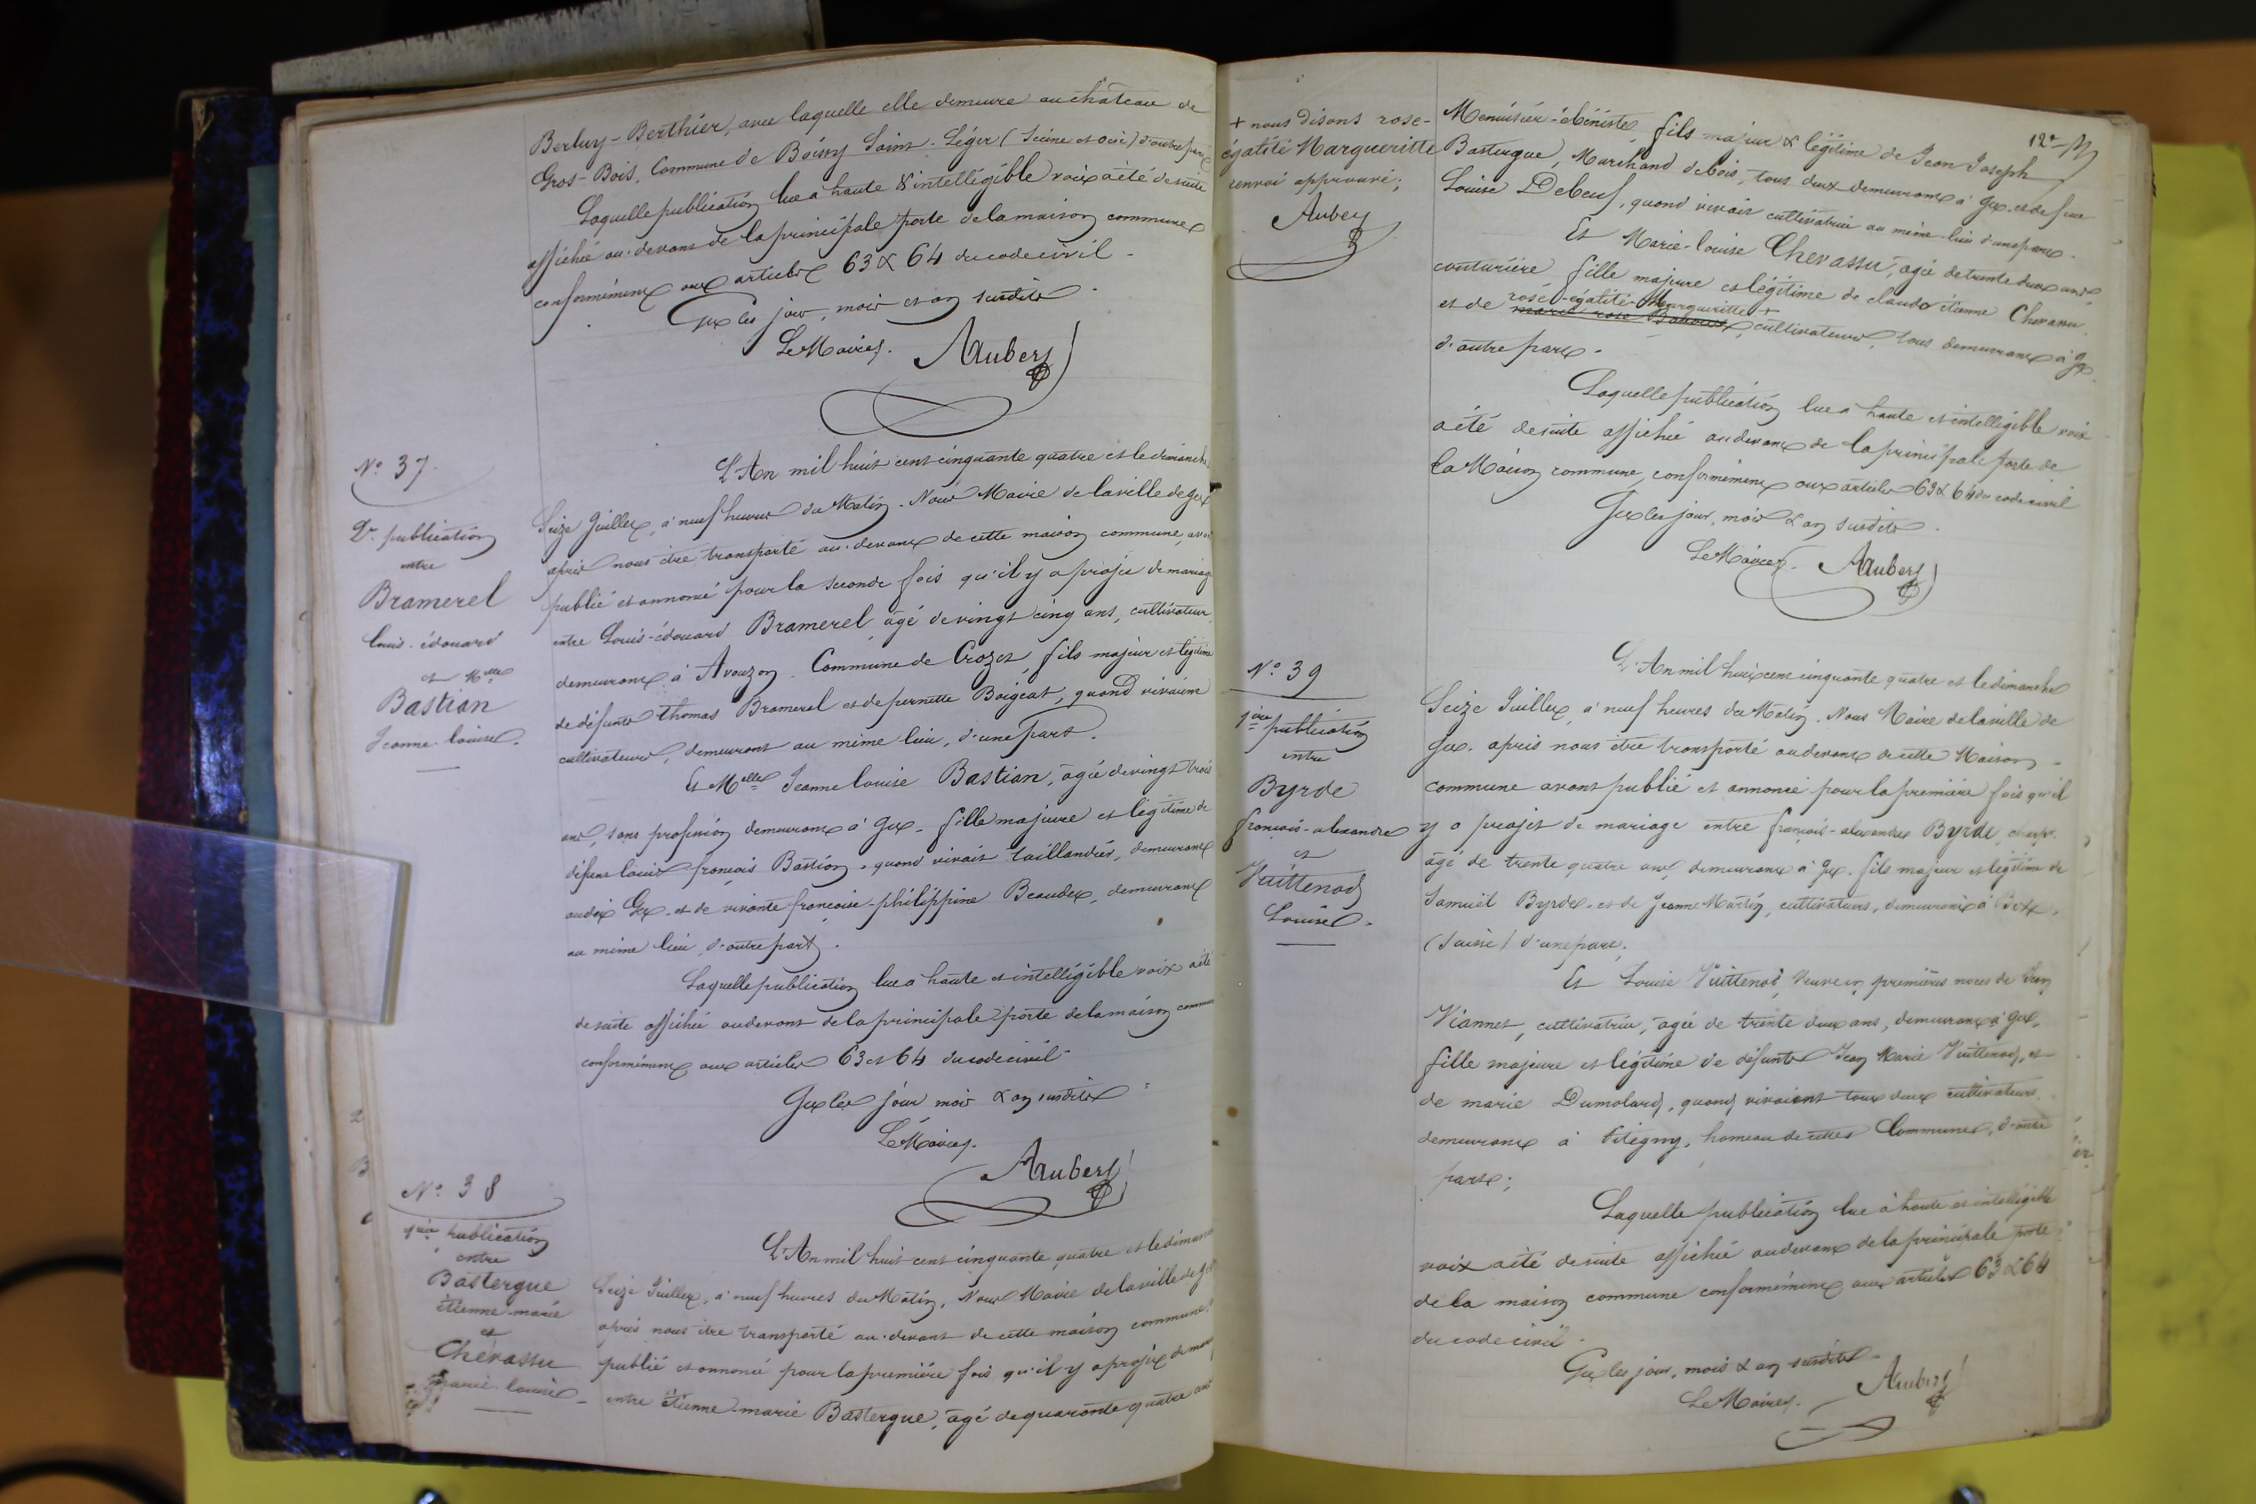 Berluy-Berthier, avec laquelle elle demeure au château de
Gros-Bois, Commune de Boissy Saint-Léger (Seine et Oise) d'autre part
Laquelle publication lue à haute & intelligible voix a été de suite
affichée au-devant de la principale porte de la maison commune
conformément aux articles 63 & 64 du code civil.
Gex les jour, mois et an susdits.
Le Maire. Aubery
N° 37.
2e publication
entre
Bramerel
louis-édouard
et Melle
Bastian
Jeanne-louise.
L'An mil huit cent cinquante quatre et le dimanche
Seize Juillet, à neuf heures du Matin. Nous Maire de la ville de Gex
après nous être transporté au-devant de cette maison commune, avons
publié et annoncé pour la seconde fois qu'il y a projet de mariage
entre Louis-édouard Bramerel, âgé de vingt cinq ans, cultivateur,
demeurant à Avouzon, Commune de Crozet, fils majeur et légitime
de défunts thomas Bramerel et de pernette Boigeat, quand vivaient
cultivateurs, demeurant au même lieu, d'une part.
Et Melle Jeanne louise Bastian, âgée de vingt trois
ans, sans profession demeurant à Gex, fille majeure et légitime de
défunt louis françois Bastian, quand vivait taillandier, demeurant
audit Gex, et de vivante françoise-philippine Beaudet, demeurant
au même lieu, d'autre part.
Laquelle publication lue à haute et intelligible voix a été
de suite affichée au devant de la principale porte de la maison commune
conformément aux articles 63 et 64 du code civil
Gex les jour mois & an susdits
Le Maire.
Aubery
N° 38
1ière publication
entre
Bastergue
étienne-marie
et
Chevassu
Marie-louise
L'An mil huit cent cinquante quatre et le dimanche
Seize Juillet, à neuf heures du Matin, Nous Maire de la ville de Gex
après nous être transporté au-devant de cette maison commune
publié et annoncé pour la première fois qu'il y a projet de mariage
entre étienne-marie Bastergue, âgé de quarante quatre ans
+ nous disons rose-
égalité Margueritte
renvoi approuvé;
Aubery
12e
Menuisier-ébéniste, fils majeur & légitime de Jean Joseph
Bastergue, Marchand de bois, tous deux demeurant à Gex, et de feue
Louise Debeuf, quand vivait cultivatrice au même lieu d'une part.
Et Marie-louise Chevassu, âgée de trente deux ans,
couturière, fille majeure et légitime de claude étienne Chevassu
rose-égalité-Margueritte +
et de marie rose, cultivateurs, tous demeurant à Gex
d'autre part.
Laquelle publication lue à haute et intelligible voix
a été de suite affichée au devant de la principale porte de
la Maison commune, conformément aux articles 63 & 64 du code civil
Gex les jour, mois & an susdits.
Le Maire. Aubery
N° 39
1ière publication
entre
Byrde
françois-alexandre
et
Vuittenod
Louise.
L'An mil huit cent cinquante quatre et le dimanche
Seize Juillet, à neuf heures du Matin. Nous Maire de la ville de
Gex, après nous être transporté au devant de cette Maison
commune avons publié et annoncé pour la première fois qu'il
y a projet de mariage entre françois-alexandre Byrde,
âgé de trente quatre ans, demeurant à Gex, fils majeur et légitime de
Samuel Byrde, et de Jeanne Martin, cultivateurs, demeurant à Bex,
(Suisse) d'une part.
Et Louise Vuittenod, Veuve en premières noces de Jean
Viannet, cultivatrice, âgée de trente deux ans, demeurant à Gex,
fille majeure et légitime de défunts Jean Marie Vuittenod, et
de marie Dumolard, quand vivaient tous deux cultivateurs
demeurant à Pitegny, hameau de cette Commune, d'autre
part;
Laquelle publication lue à haute et intelligible
voix a été de suite affichée au devant de la principale porte
de la maison commune conformément aux articles 63 & 64
du code civil.
Gex les jour, mois & an susdits
Le Maire. Aubery